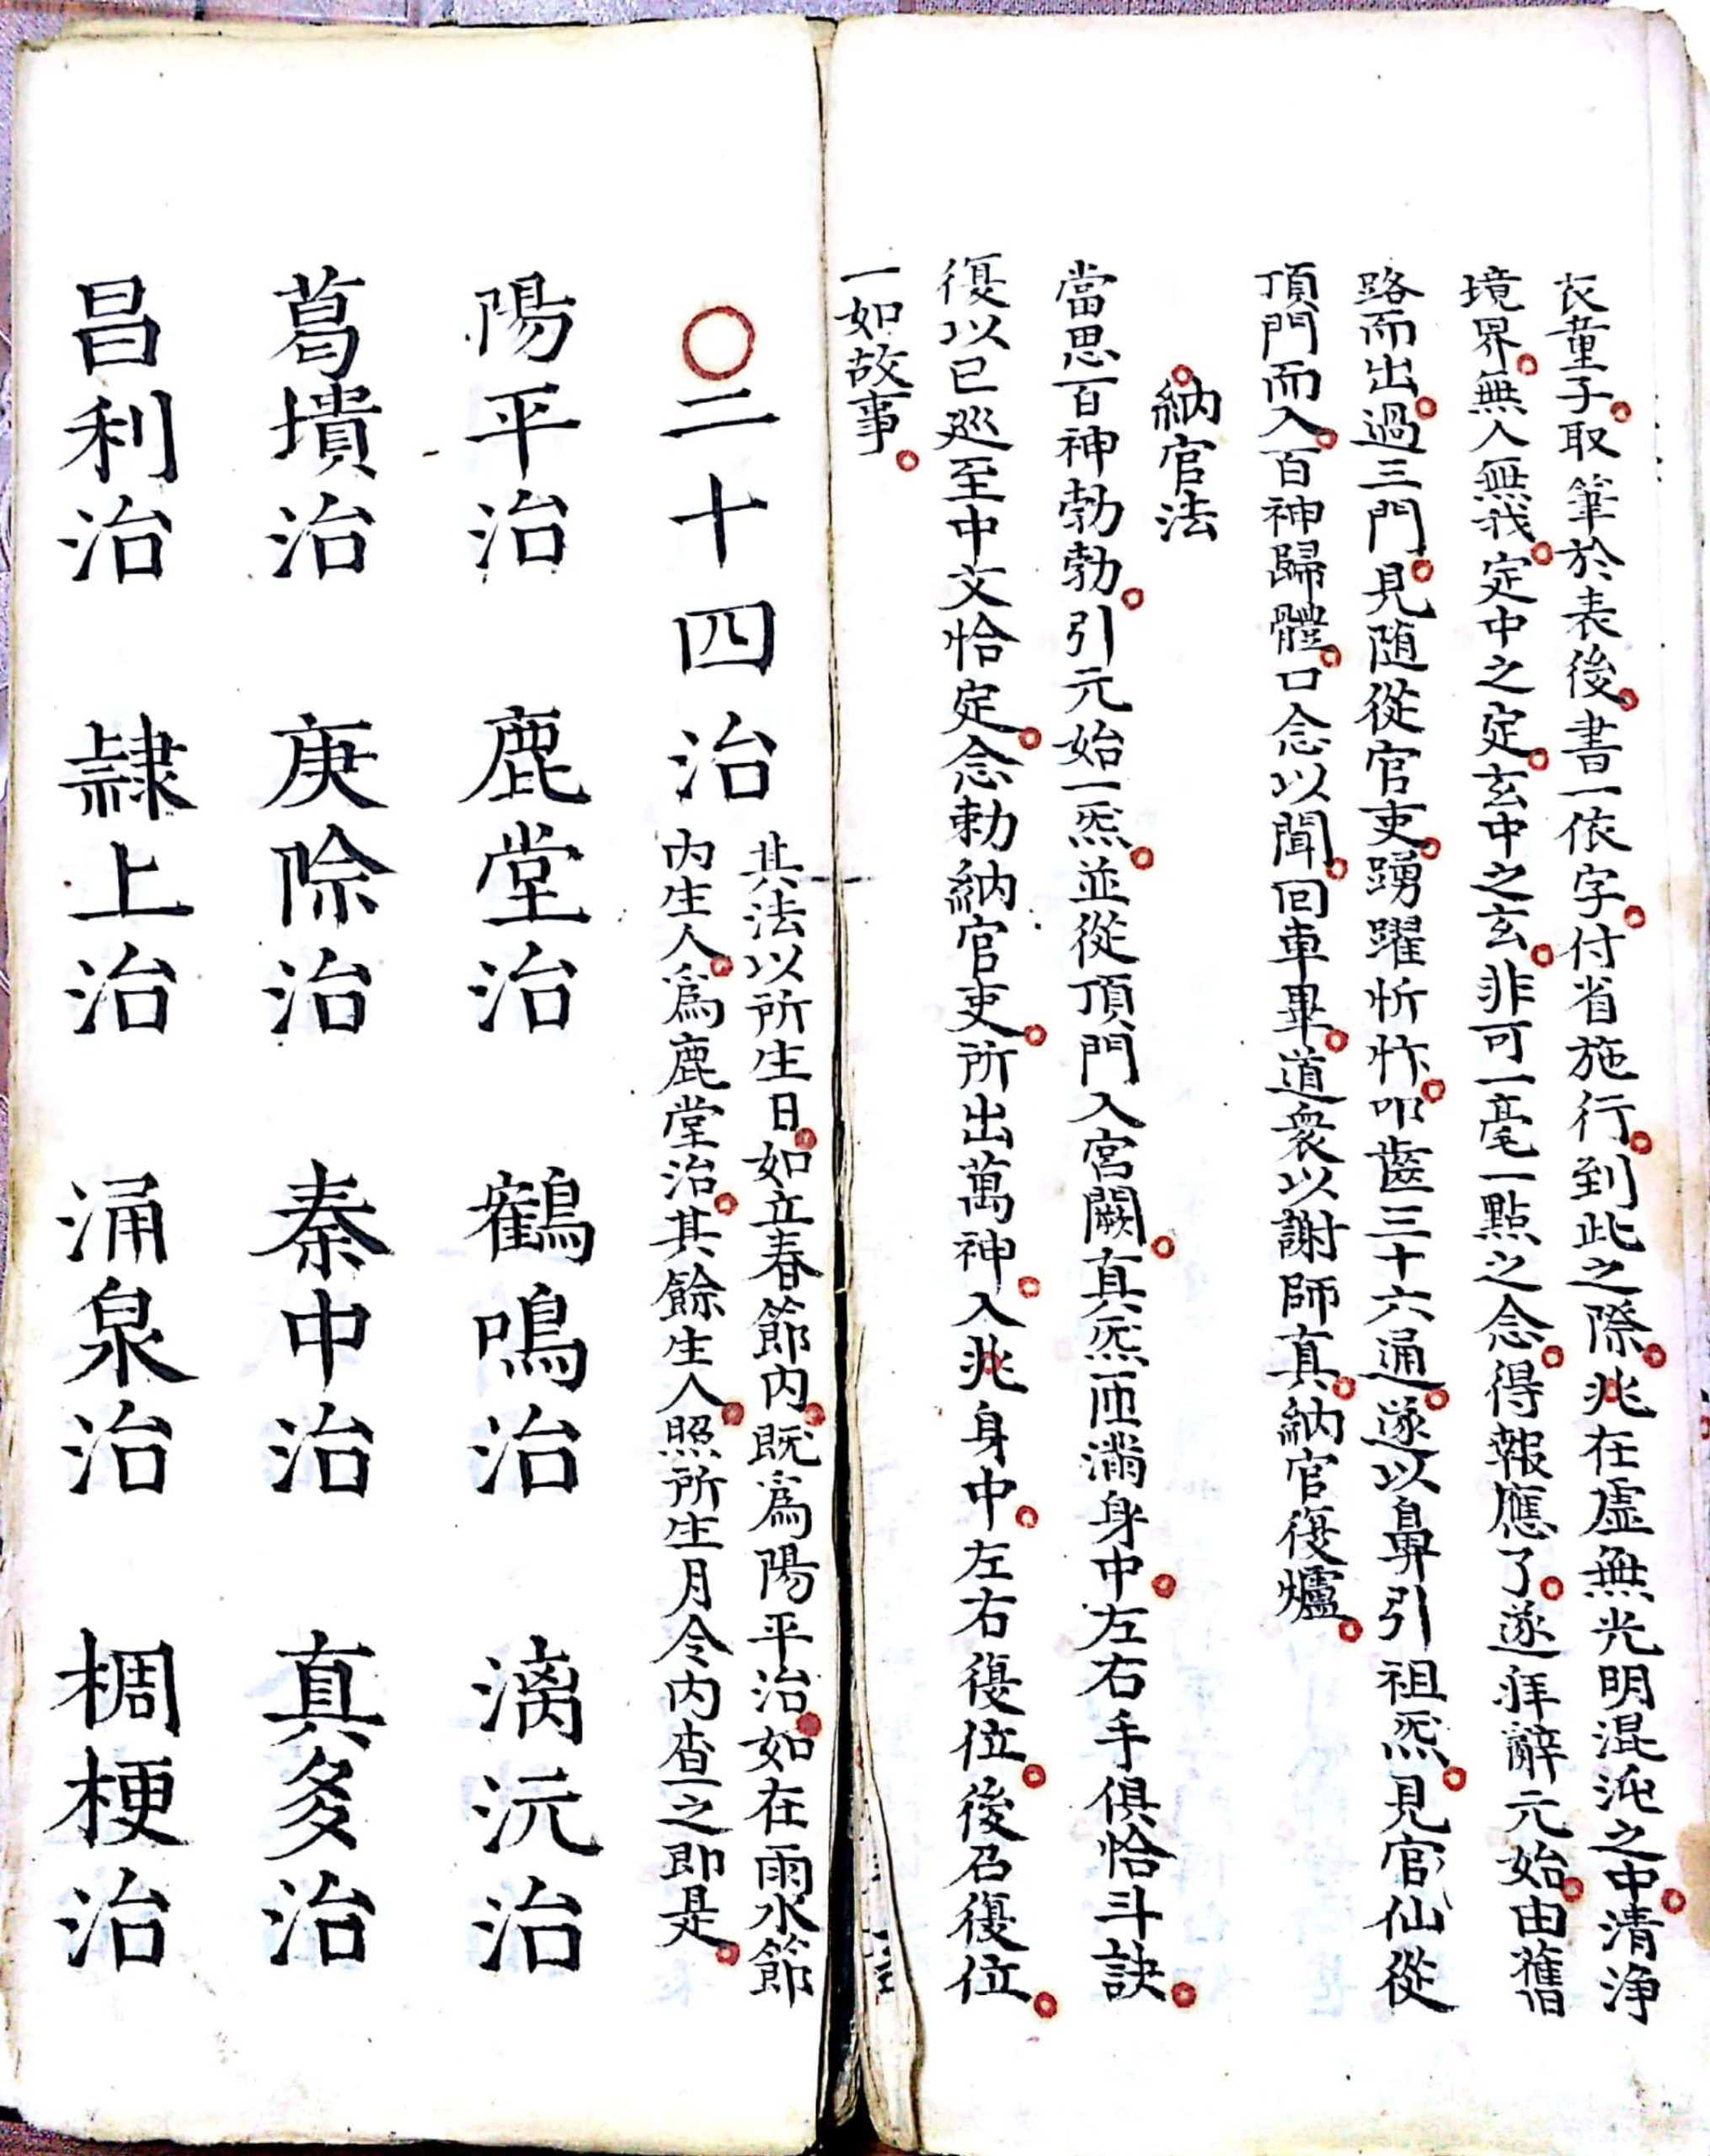 衣童子取筆於表後書一依字付省施行到此之際兆在虛無光明混沌之中清淨
境界無人無我定中之定玄中之玄非可一毫一點之念得報應了遂拜辭元始由舊
路而出過三門見随從官吏踴躍忻忭叩齒三十六通遂以鼻引祖炁見官仙從
頂門而入百神歸體口念以聞回車畢道衆以謝師真納官復爐
納官法
當思百神勃勃引元始一炁並從頂門入宮闕真炁匝滿身中左右手俱恰斗訣
復以已巡至中文恰定念勅納官吏所出萬神入兆身中左右復位後召復位
一如故事
〇二十四治
其法以所生日如立春節內既為陽平治如在雨水節
內生人為鹿堂治其餘生人照所生月令內查之即是
陽平治 鹿堂治 鶴鳴治 漓沅治
葛璝治 庚除治 秦中治 真多治
昌利治 隸上治 涌泉治 稠梗治